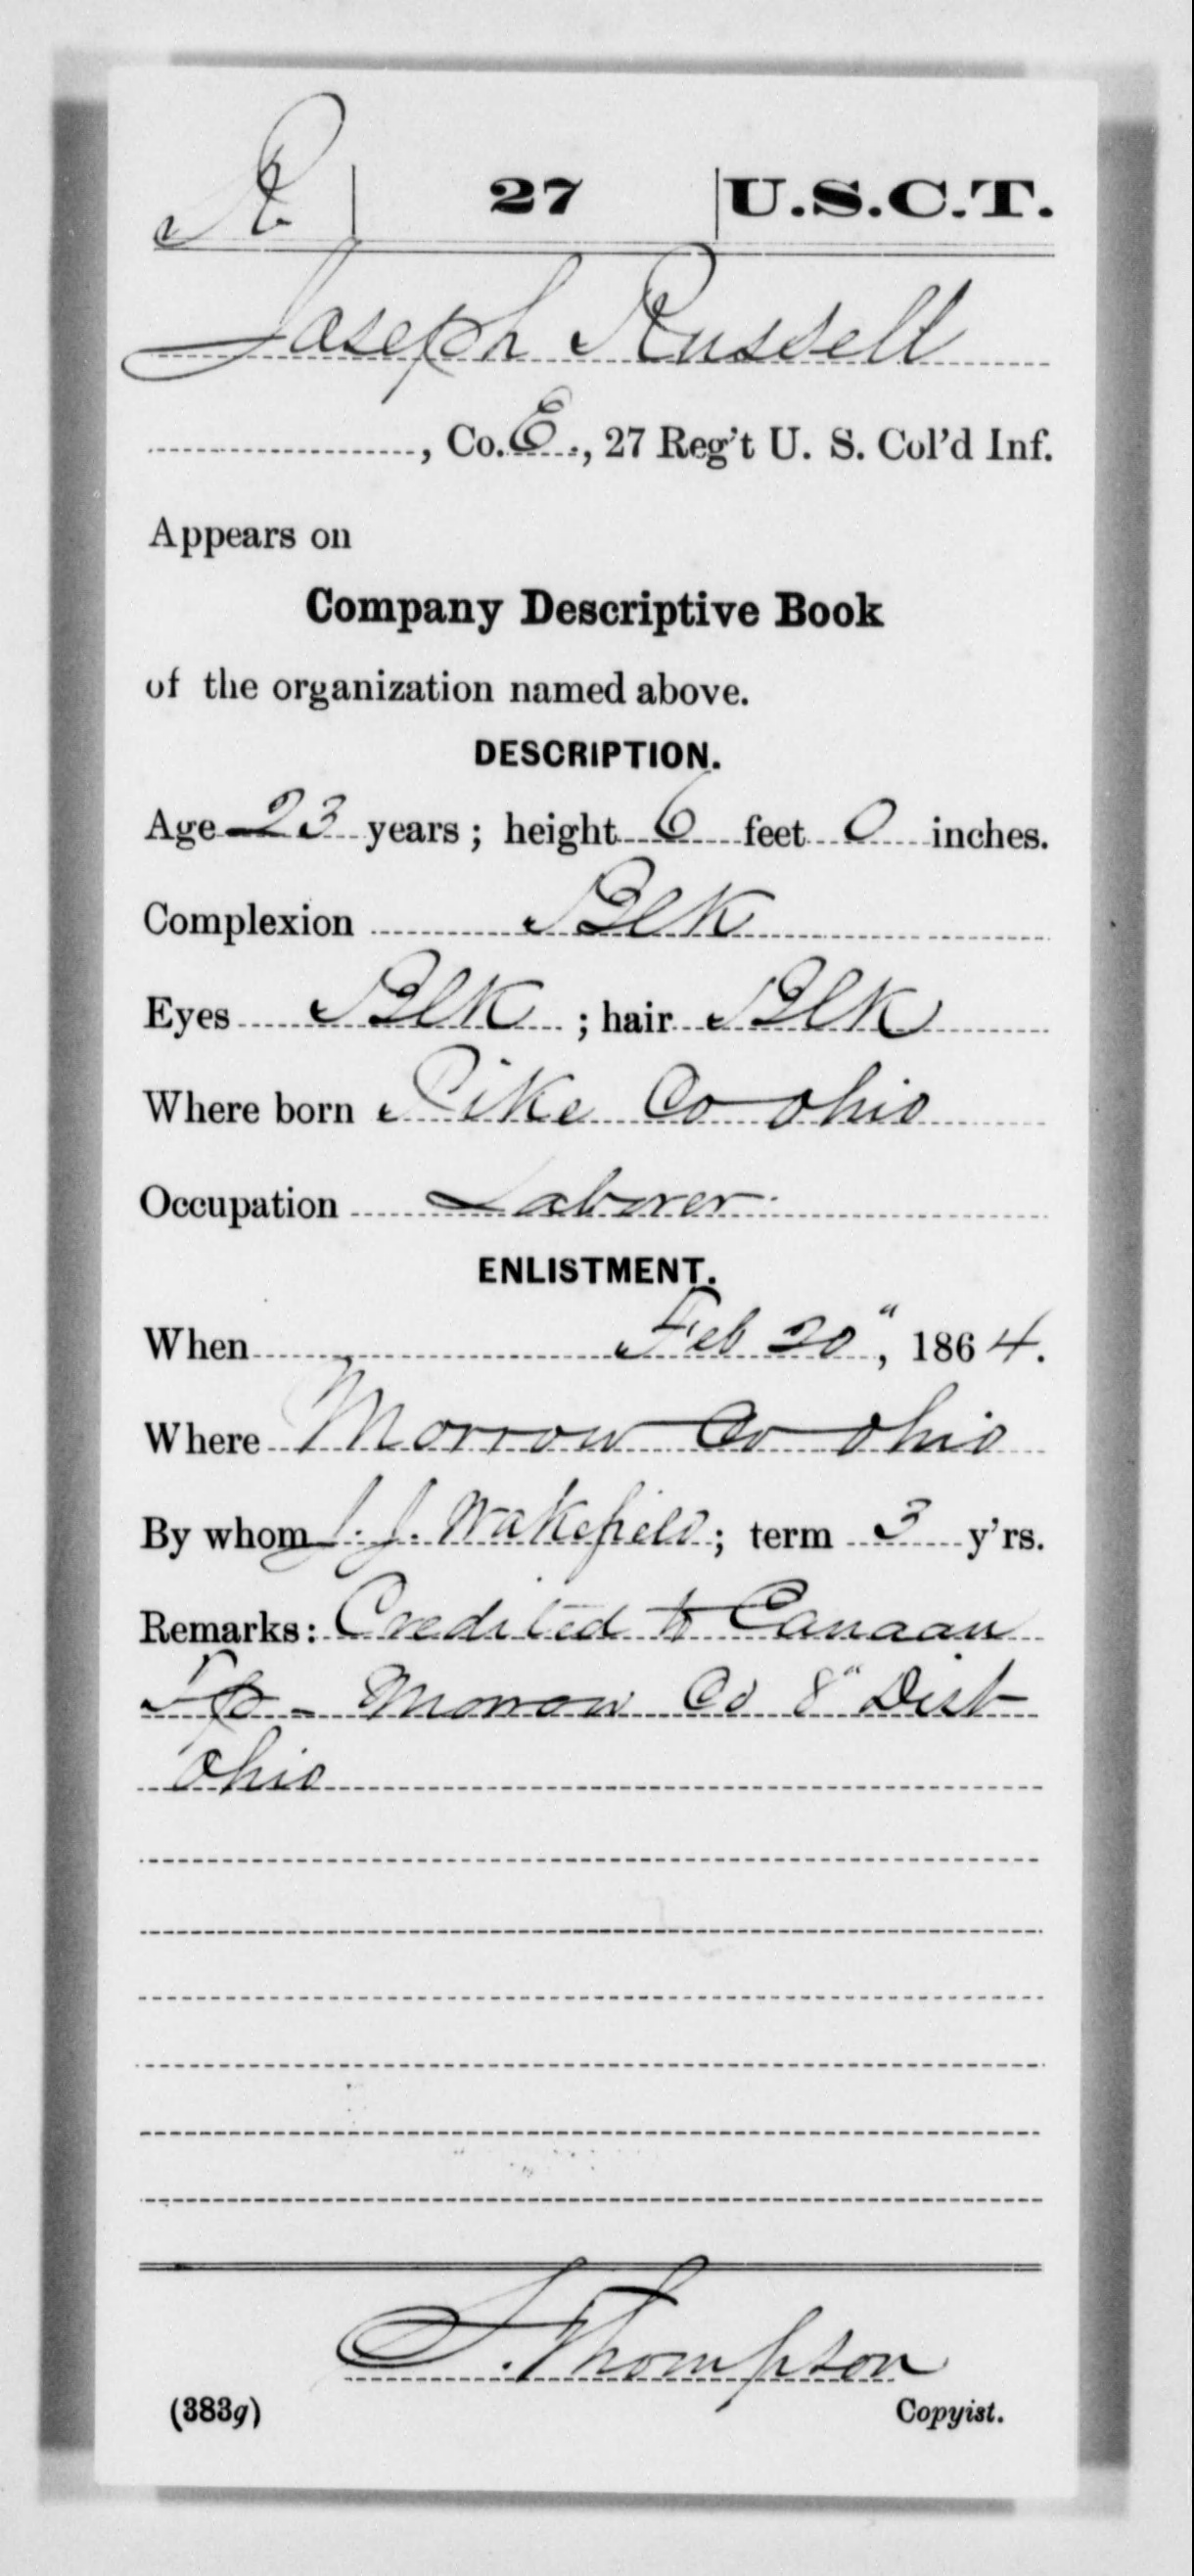 R | 27 | U.S.C.T.
Joseph Russell
, Co. E., 27 Reg't U. S. Col'd Inf.
Appears on
Company Descriptive Book
of the organization named above.
DESCRIPTION.
Age 23 years; height 6 feet 0 inches.
Complexion Blk
Eyes Blk; hair Blk
Where born Pike Co Ohio
Occupation Laborer
ENLISTMENT.
When Feb 20", 1864.
Where Morrow Co Ohio
By whom J. J. Wakefield; term 3 y'rs.
Remarks: Credited to Canaan
Tp - Morrow Co 8" Dist
Ohio
S. Thompson
(383g) Copyist.